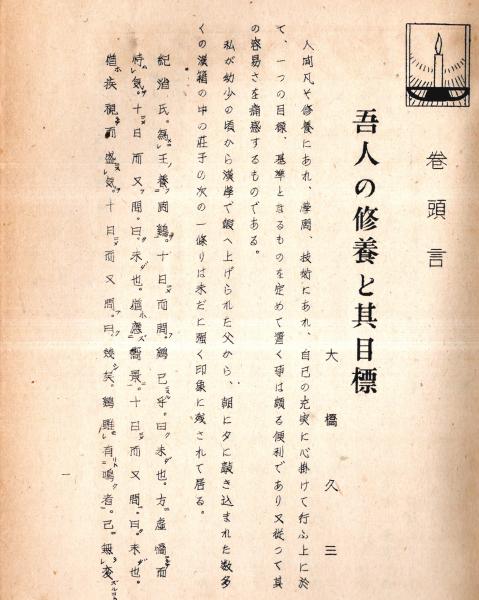 巻頭言
吾人の修養と其目標
大橋久三
人間凡そ修養にあれ、学問、技術にあれ、自己の充実に心掛けて行ふ上に於
て、一つの目標、基準となるものを定めて置く事は頗る便利であり又従つて其
の容易さを痛感するものである。
私が幼少の頃から漢学で鍛へ上げられた父から、朝に夕に敲き込まれた数多
くの漢籍の中の荘子の次の一條りは未だに強く印象に残されて居る。
紀渻氏。為王養闘鶏。十日而問。鶏已乎。曰未也。方虚憍而
恃気。十日而又問。曰。未也。猶應嚮景。十日而又問。曰。未也。
猶疾視而盛気。十日而又問。曰。幾矣。鶏雖有鳴者。已無変
一